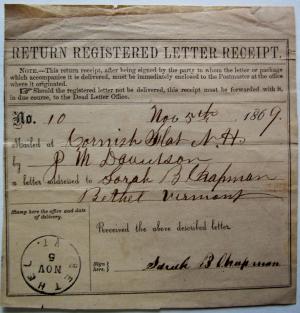 RETURN REGISTERED LETTER RECEIPT.
NOTE.—This return receipt, after being signed by the party to whom the letter or package
which accompanies it is delivered, must be immediately enclosed to the Postmaster at the office
where it originated.
☞ Should the registered letter not be delivered, this receipt must be forwarded with it,
in due course, to the Dead Letter Office.
No. 10 Nov 5th 1869.
Mailed at Cornish Flat N.H.
by P M Davidson
a letter addressed to Sarah B Chapman
Bethel Vermont
Stamp here the office and date
of delivery.
Received the above described letter.
BETHEL
NOV
5
PT.
Sign
here:
Sarah B Chapman